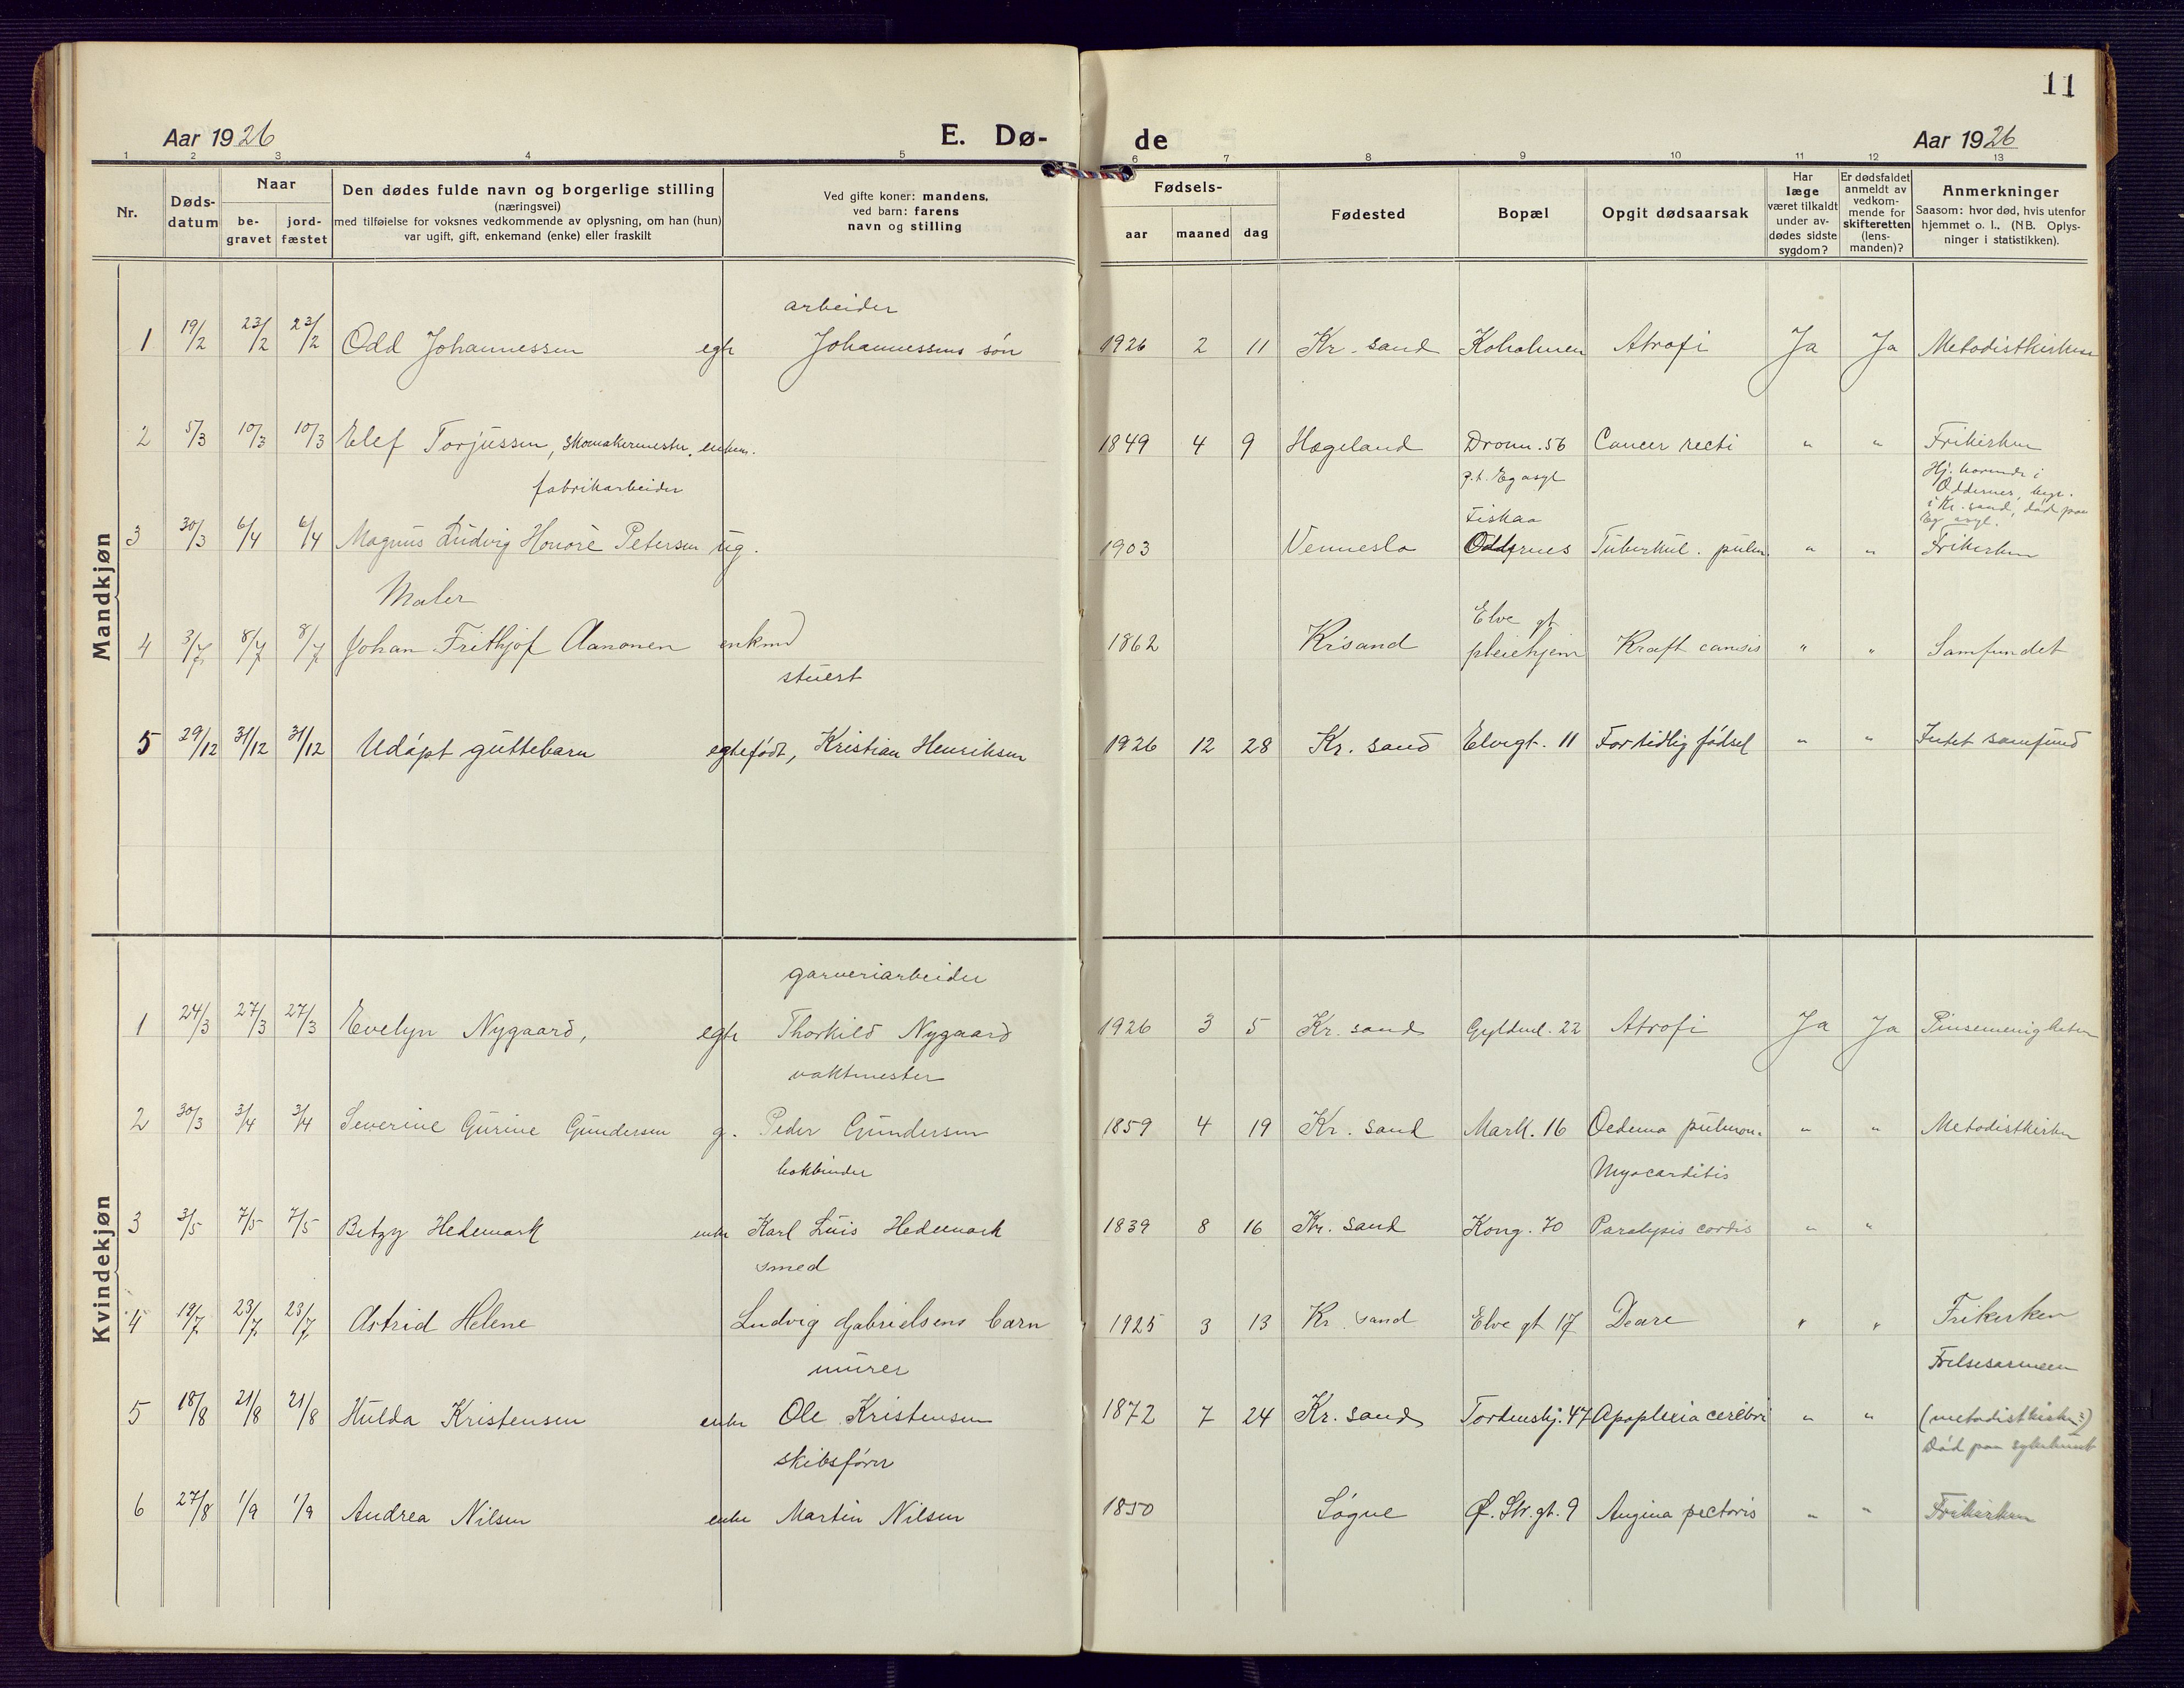 11
Aar 1926 E. Dø- de Aar 1926
1 2 3 4 5 6 7 8 9 10 11 12 13
Nr.
Døds-
datum
Naar
be-
gravet
jord-
fæstet
Den dødes fulde navn og borgerlige stilling
(næringsvei)
med tilføielse for voksnes vedkommende av oplysning, om han (hun)
var ugift, gift, enkemand (enke) eller fraskilt
Ved gifte koner: mandens,
ved barn: farens
navn og stilling
Fødsels-
aar maaned dag
Fødested
Bopæl
Opgit dødsaarsak
Har
læge
været tilkaldt
under av-
dødes sidste
sygdom?
Er dødsfaldet
anmeldt av
vedkom-
mende for
skifteretten
(lens-
manden)?
Anmerkninger
Saasom: hvor død, hvis utenfor
hjemmet o. l., (NB. Oplys-
ninger i statistikken).
Mandkjøn
arbeider
1 19/2 23/2 23/2 Odd Johannessen egte Johannessens søn 1926 2 11 Kr. sand Koholmen Atrofi Ja Ja Metodistkirken
2 5/3 10/3 10/3 Elef Torjussen, skomakermester, enkem. 1849 4 9 Hægeland Dronn. 56 Cancer recti " " Frikirken
p.t. Eg asyl
Hj. hørende i
Oddernes, begr.
i Kr. sand, død paa
Eg asyl.
fabrikarbeider
Fiskaa
3 30/3 6/4 6/4 Magnus Ludvig Honorè Petersen ug. 1903 Vennesla Oddernes Tuberkul. pulm. " " Frikirken
Maler
Elve gt
4 3/7 8/7 8/7 Johan Frithjof Aanonsen enkmd 1862 Krsand pleiehjem Kræft " " Samfundet
stuert
5 29/12 31/12 31/12 Udøpt guttebarn egtefødt, Kristian Henriksen 1926 12 28 Kr. sand Elvegt. 11 For tidlig fødsel " " Intet samfund
Kvindekjøn
garveriarbeider
1 24/3 27/3 27/3 Evelyn Nygaard, egte Thorkild Nygaard 1926 3 5 Kr. sand Gyldenl. 22 Atrofi Ja Ja Pinsemenigheten
vaktmester
2 30/3 3/4 3/4 Severine Gurine Gundersen g. Peder Gundersen 1859 4 19 Kr. sand Mark. 16 Oedema pulmon. " " Metodistkirken
bokbinder
Myocarditis
3 3/5 7/5 7/5 Betzy Hedemark enke Karl Luis Hedemark 1839 8 16 Kr. sand Kong. 70 Paralysis cordis " "
smed
4 19/7 23/7 23/7 Astrid Helene Ludvig Gabrielsens barn 1925 3 13 Kr. sand Elve gt 17 Deare " " Frikirken
murer
Frelsesarmeen
5 18/8 21/8 21/8 Hulda Kristensen enke Ole Kristensen 1872 7 24 Kr. sand Tordenskj. 47 Apoplexia cerebri " " (metodistkirken?)
Død paa sykehuset
skibsfører
6 27/8 1/9 1/9 Andrea Nilsen enke Martin Nilsen 1850 Søgne Ø. Str. gt. 9 Angina pectoris " " Frikirken